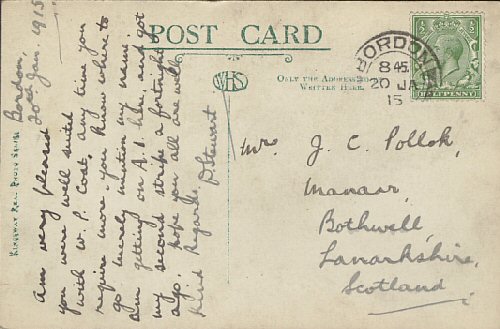 POST CARD
WHS
ONLY THE ADDRESS TO BE
WRITTEN HERE.
BORDON
8 45
20 JA
15
HALFPENNY
Bordon,
20th Jan. 1915
Am very pleased
you were well suited
with W. P. Coat. Any time you
require more. you know where to
go merely mention my name.
Am getting on A.1. here, and got
my second stripe a fortnight
ago. hope you all are well
Kind Regards D Stewart
Mr. J. C. Pollok,
Manaar,
Bothwell,
Lanarkshire,
Scotland
KINGSWAY REAL PHOTO SERIES